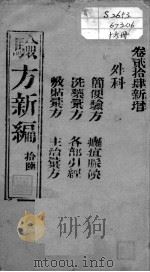 卷貳拾肆新增
外科
簡便驗方
癰疽脈訣
洗藥彙方
各部引經
敷貼彙方
主治彙方
驗方新編
拾陸
S 2653
67306